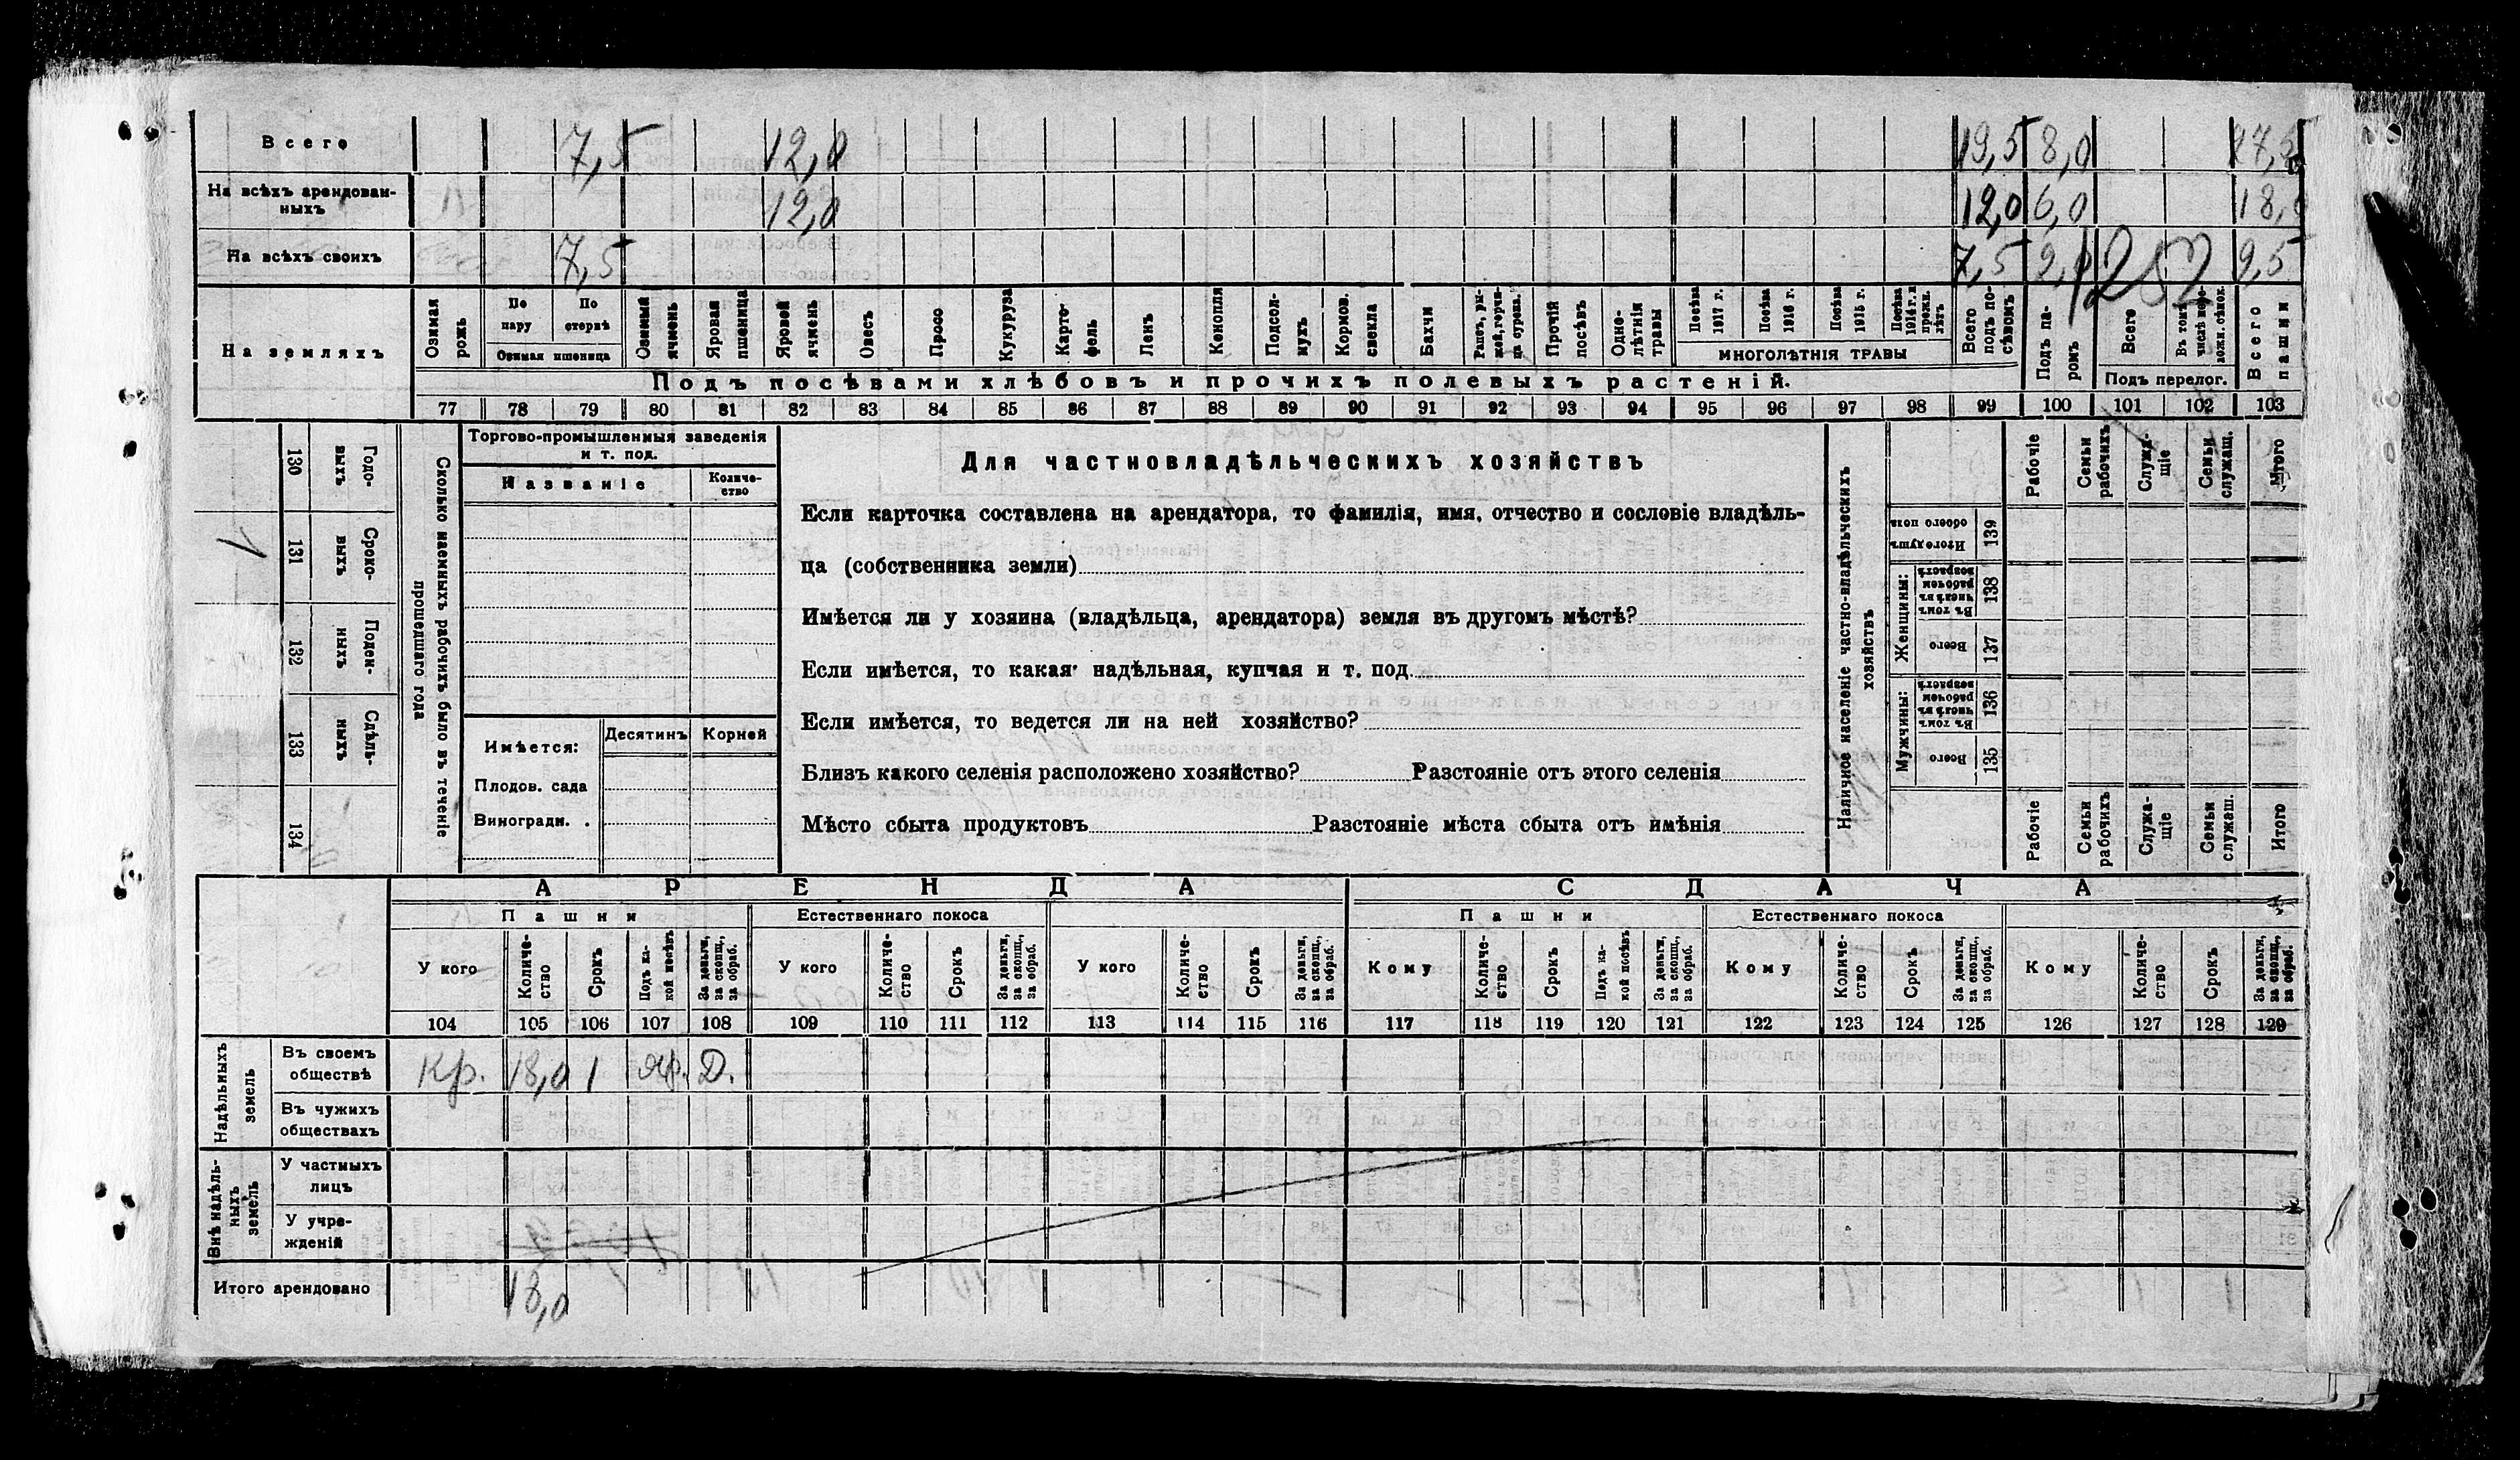 Всего 7,5 12,0 19,5 8,0 27,5
На всѣхъ арендован-
ныхъ 12,0 12,0 6,0 18,0
На всѣхъ своихъ 7,5 7,5 2,0 9,5
1252
На земляхъ
Озимая рожь
По пару
По стернѣ
Озимая пшеница
Озимый ячмень
Яровая пшеница
Яровой ячмень
Овесъ
Просо
Кукуруза
Карто-
фель
Ленъ
Конопля
Подсол-
нухъ
Кормов. свекла
Бахчи
Прочій посѣвъ
Одно-
лѣтнія травы
Посѣва 1917 г.
Посѣва 1916 г.
Посѣва 1915 г.
Посѣва 1914 г. и прежн. лѣтъ
МНОГОЛѢТНІЯ ТРАВЫ
Всего подъ по-
сѣвомъ
Подъ па-
ромъ
Всего
Подъ перелог.
Всего пашни
Подъ посѣвами хлѣбовъ и прочихъ полевыхъ растеній.
77 78 79 80 81 82 83 84 85 86 87 88 89 90 91 92 93 94 95 96 97 98 99 100 101 102 103
Сколько наемныхъ рабочихъ было въ теченіе
прошедшаго года
Годо-
выхъ
130
Сроко-
выхъ
131 1
Поден-
ныхъ
132
Сдѣль-
ныхъ
133
134
Торгово-промышленныя заведенія
и т. под.
Названіе
Количе-
ство
Имѣется: Десятинъ Корней
Плодов. сада
Виноградн. .
Для частновладѣльческихъ хозяйствъ
Если карточка составлена на арендатора, то фамилія, имя, отчество и сословіе владѣль-
ца (собственника земли)
Имѣется ли у хозяина (владѣльца, арендатора) земля въ другомъ мѣстѣ?
Если имѣется, то какая· надѣльная, купчая и т. под.
Если имѣется, то ведется ли на ней хозяйство?
Близъ какого селенія расположено хозяйство? Разстояніе отъ этого селенія
Мѣсто сбыта продуктовъ Разстояніе мѣста сбыта отъ имѣнія
Наличное населеніе частно-владѣльческихъ
хозяйствъ
Рабочіе
Семьи рабочихъ
Служа-
щіе
Семьи служащ.
Итого
Итого душъ обоего пола
139
Женщины:
Въ томъ числѣ въ рабочемъ возрастѣ
138
Всего
137
Мужчины:
Въ томъ числѣ въ рабочемъ возрастѣ
136
Всего
135
Рабочіе
Семьи рабочихъ
Служа-
щіе
Семьи служащ.
Итого
АРЕНДА СДАЧА
Пашни Естественнаго покоса Пашни Естественнаго покоса
У кого
Количе-
ство
Срокъ
Подъ ка-
кой посѣвъ
За деньги, за скопщ., за обраб.
У кого
Количе-
ство
Срокъ
За деньги, за скопщ., за обраб.
У кого
Количе-
ство
Срокъ
За деньги, за скопщ., за обраб.
Кому
Количе-
ство
Срокъ
Подъ ка-
кой посѣвъ
За деньги, за скопщ., за обраб.
Кому
Количе-
ство
Срокъ
За деньги, за скопщ., за обраб.
Кому
Количе-
ство
Срокъ
За деньги, за скопщ., за обраб.
104 105 106 107 108 109 110 111 112 113 114 115 116 117 118 119 120 121 122 123 124 125 126 127 128 129
Надѣльныхъ земель
Въ своемъ
обществѣ Кр. 18,0 1 Яр. Д.
Въ чужихъ
обществахъ
Внѣ надѣль-
ныхъ земель
У частныхъ
лицъ
У учре-
жденій
Итого арендовано 18,0